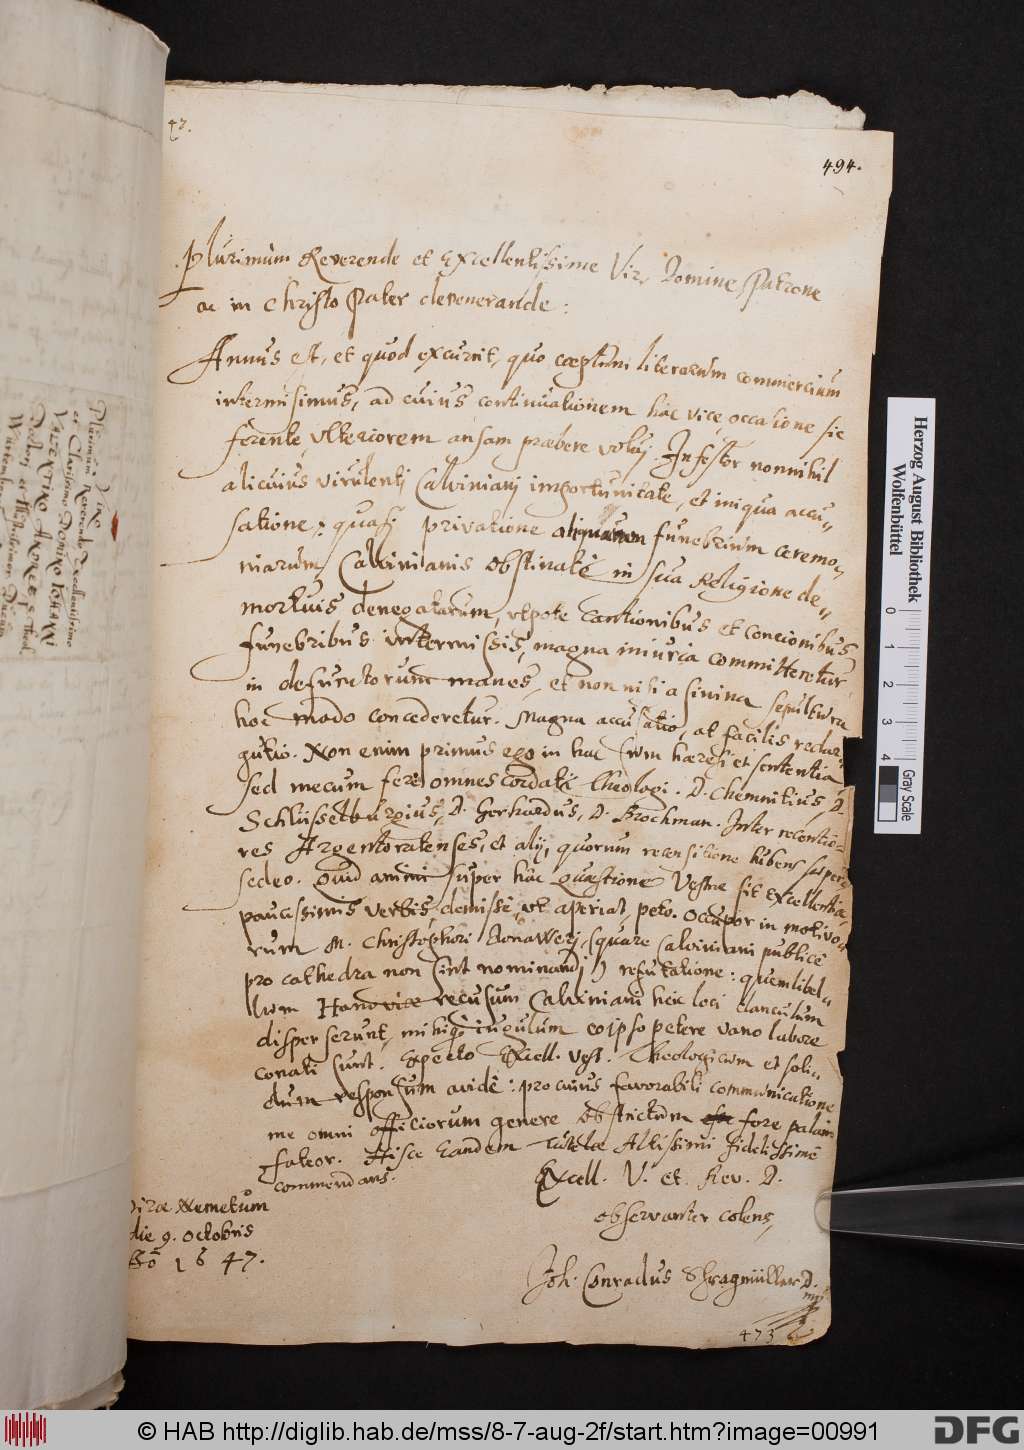 47.
494.
Plurimum Reverende et Excellentissime Vir, Domine, Patrone
ac in Christo Pater devenerande:
Annus est, et quod excurrit, quo coeptum literarum commercium
intermisimus, ad cuius continuationem hac vice, occasione sic
ferente, ulteriorem ansam præbere volui. Infestor nonnihil
alicuius virulenti Calviniani importunitate, et iniqua accu„
satione; quasi privatione funebrium ceremo„
niarum, Calvinianis obstinatè in sua Religione de„
mortuis denegatarum, utpote cantionibus et concionibus
funebribus intermissis, magna iniuria committeretur
in defunctorum manes, et non nisi asinina sepultura
hoc modo concederetur. Magna accusatio, at facilis redar„
gutio. Non enim primus ego in hac sum hæresi et sententia
sed mecum ferè omnes cordati Theologi. D. Chemnitius, D.
Schlüsselburgius, D. Gerhardus, D. Brochman. Inter recentio„
res Argentoratenses, et alij, quorum recensitione lubens
sedeo. Quid animi super hac quæstione Vestræ sit Excellentiæ,
paucissimis verbis, demissè, ut aperiat, peto. Occupor in motivo„
rum M. Christophori (quare Calviniani publicè
pro cathedra non sint nominandi) refutatione: quem libel„
lum Hanoviæ recusum Calviniani heic loci clanculum
disperserunt, mihique iugulum eo ipso petere vano labore
conati sunt. Expecto Excell. Vest. Theologicum et soli„
dum responsum avidè: pro cuius favorabili communicatione
me omni officiorum genere obstrictum fore palam
fateor. Hisce Eandem tutelæ Altissimi fidelissimè
commendans.
Excell. V. et Rev. D.
observanter colens,
Nemetum
die 9. Octobris
1647.
Joh. Conradus Schragmüller D.
mp
473
Plurimum Reverendo Excellentissimo
et Clarissimo Domino Johanni
Valentino Andreæ S. Theol.
Doctori et
Herzog August Bibliothek
Wolfenbüttel
0 1 2 3 4
Gray Scale
© HAB http://diglib.hab.de/mss/8-7-aug-2f/start.htm?image=00991
DFG